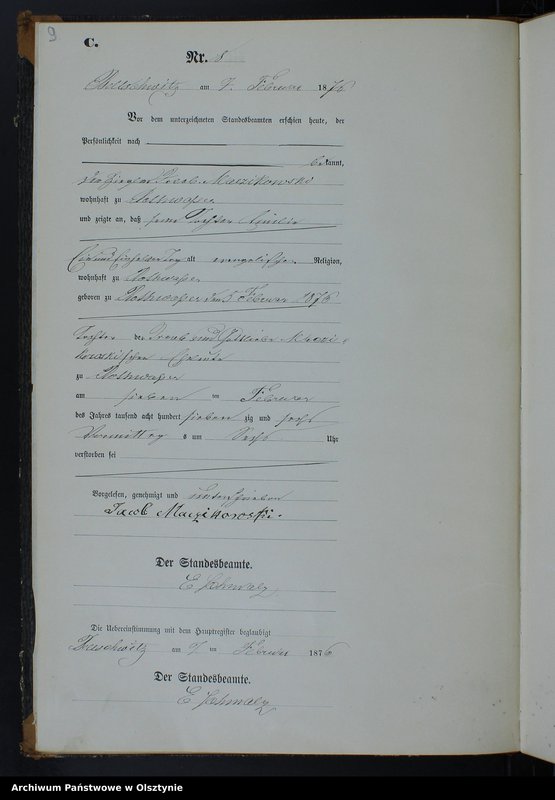 9
C.
Nr. 8
am 7. Februar 1876
Vor dem unterzeichneten Standesbeamten erschien heute, der
Persönlichkeit nach
bekannt,
der Jacob Maczikowski
wohnhaft zu Rothwasser
und zeigte an, daß seine Tochter
alt evangelischer Religion,
wohnhaft zu Rothwasser
geboren zu Rothwasser den 5 Februar 1876
Tochter der Jacob und
Eheleute
zu Rothwasser
am sieben ten Februar
des Jahres tausend acht hundert sieben zig und sechs
Vormittag s um Sechs Uhr
verstorben sei
Vorgelesen, genehmigt und unterschrieben
Jacob Maczikowski.
Der Standesbeamte.
E Schmalz
Die Uebereinstimmung mit dem Hauptregister beglaubigt
am 7. ten Februar 1876
Der Standesbeamte.
E Schmalz
Archiwum Państwowe w Olsztynie